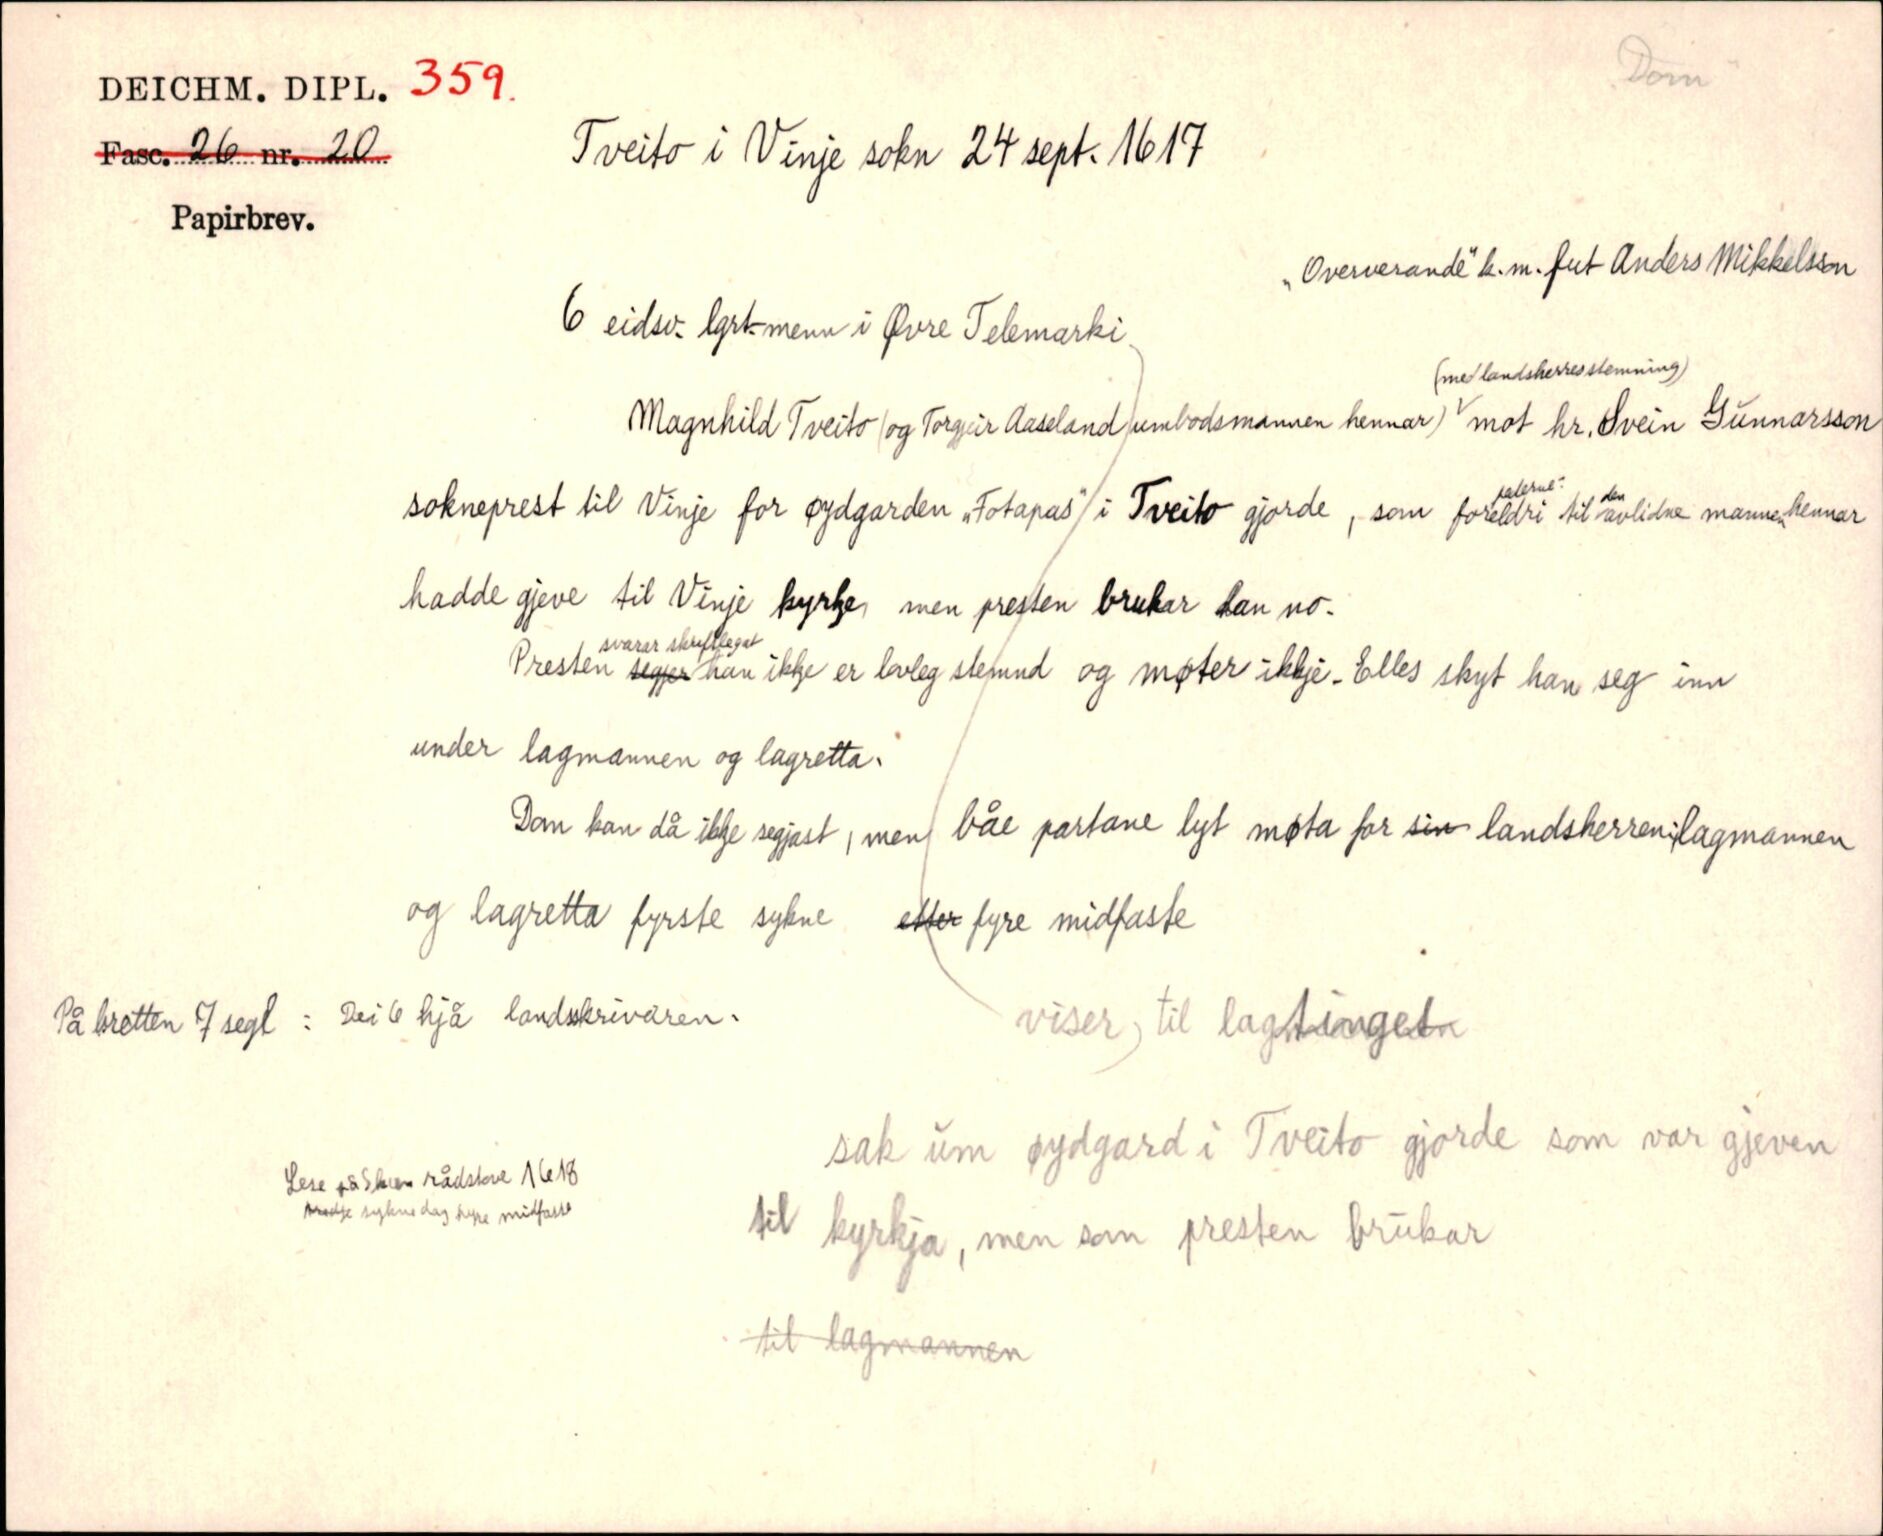 Dom
DEICHM. DIPL. 359.
Fasc. 26 nr. 20
Papirbrev.
Tveito i Vinje sokn 24 sept. 1617
„Oververande" k.m. fut Anders Mikkelsson
6 eidsv. lgrt-menn i Øvre Telemarki
(med landsherres stemning)
Magnhild Tveito (og Torgjeir Aaseland umbodsmannen hennar) mot hr. Svein Gunnarsson
sokneprest til Vinje for øydgarden „Fotapas" i Tveito gjorde, som foreldri til den avlidne mannen hennar
hadde gjeve til Vinje kyrkje, men presten brukar han no.
svarar skriftlegat
Presten segjer han ikkje er lovleg stemnd og møter ikkje. Elles skyt han seg inn
under lagmannen og lagretta.
Dom kan då ikkje segjast, men båe partane lyt møta for sin landsherren, lagmannen
og lagretta fyrste sykne etter fyre midfaste
På bretten 7 segl : Dei 6 hjå landsskrivaren.
viser til lagtinget
sak um øydgard i Tveito gjorde som var gjeven
til kyrkja, men som presten brukar
til lagmannen
Lese på Skien rådstove 1618
tredje syknedag fyre midfaste